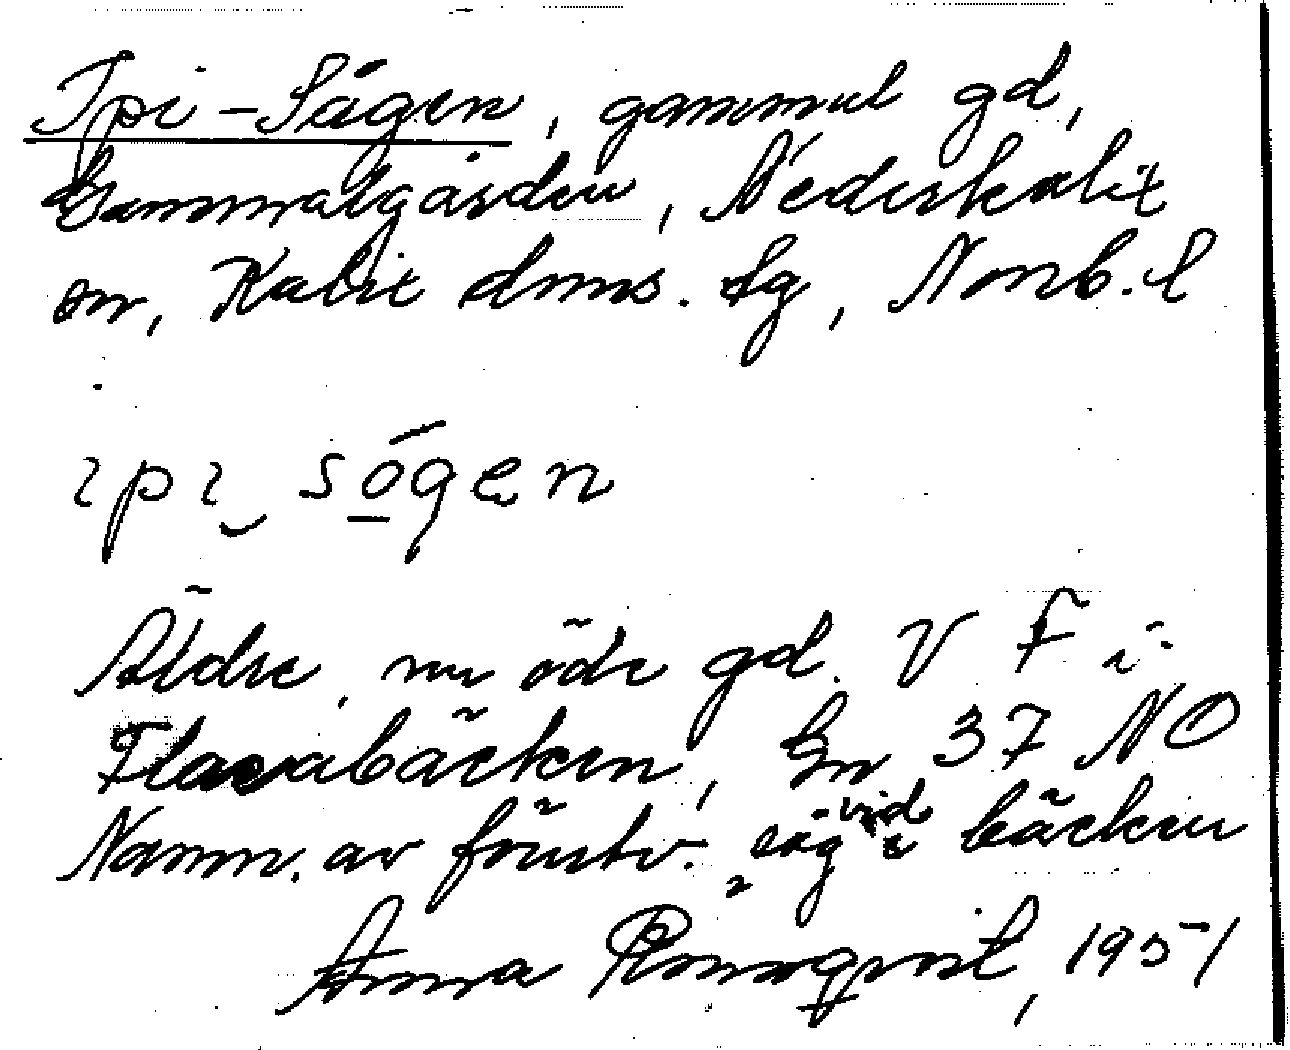 Ipi-Sågen, gammal gd,
Gammalgården, Nederkalix
sn, Kalix dnms. lg, Norrb. l
ipi sógen
Äldre, nu öde gd. V F i
bäcken, Gn 37 NO
Namn. av förutv. såg vid bäcken
Anna Rönnqvist, 1951